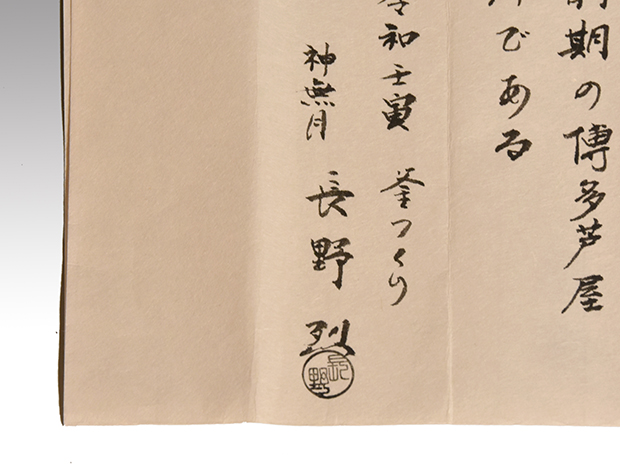 期の傅多芦屋
である
和壬寅 釜つくり
神無月 長野 烈
長野